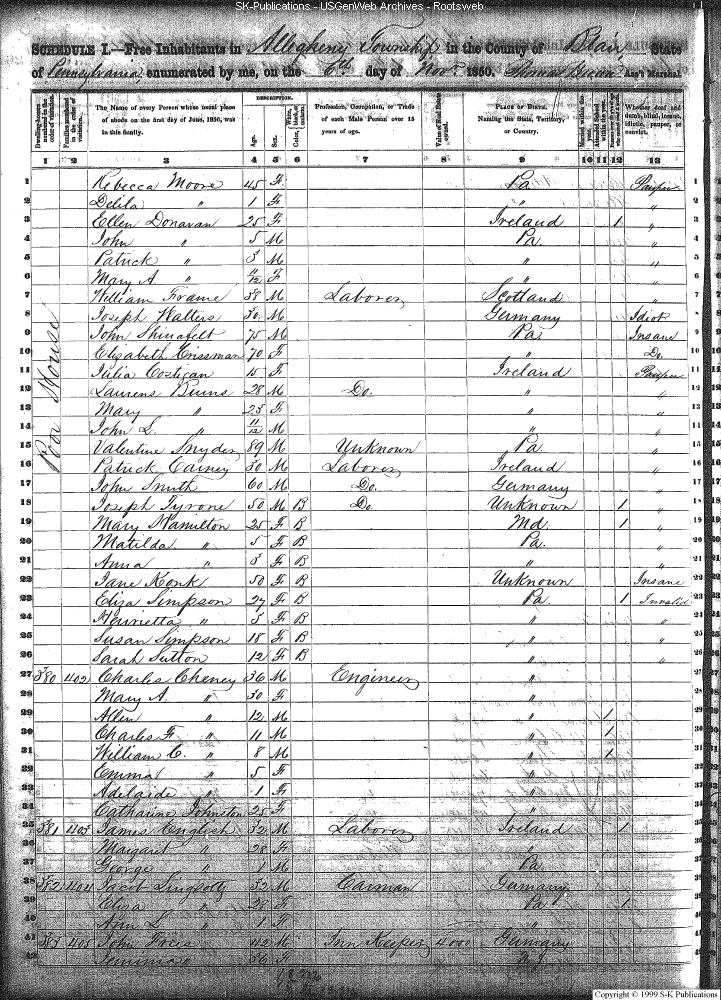 SK-Publications - USGenWeb Archives - Rootsweb
SCHEDULE I.—Free Inhabitants in Allegheny Township in the County of Blair State
of Pennsylvania enumerated by me, on the 6th day of Nov. 1850. Thomas Ass't Marshal.
Dwelling-houses numbered in the order of visitation. Families numbered in the order of visitation. The Name of every Person whose usual place of abode on the first day of June, 1850, was in this family. DESCRIPTION. Age. Sex. Color, White, black, or mulatto. Profession, Occupation, or Trade of each Male Person over 15 years of age. Value of Real Estate owned. PLACE OF BIRTH. Naming the State, Territory, or Country. Married within the year. Attended School within the year. Whether deaf and dumb, blind, insane, idiotic, pauper, or convict.
1 2 3 4 5 6 7 8 9 10 11 12 13
Poor House
1 Rebecca Moore 45 F Pa Pauper 1
2 Delila " 1 F " " 2
3 Ellen Donavan 25 F Ireland 1 " 3
4 John " 5 M Pa. " 4
5 Patrick " 3 M " " 5
6 Mary A " 11/12 F " " 6
7 William Frame 38 M Laborer Scotland " 7
8 Joseph Walters 30 M Germany Idiot 8
9 John Shinafelt 75 M Pa Insane 9
10 Elizabeth Crissman 70 F " Do. 10
11 Julia Costigan 15 F Ireland Pauper 11
12 Laurens Burns 28 M Do. " " 12
13 Mary " 25 F " " 13
14 John L. " 11/12 M " " 14
15 Valentine Snyder 89 M Unknown Pa. " 15
16 Patrick Carney 30 M Laborer Ireland " 16
17 John Smith 60 M Do. Germany " 17
18 Joseph Tyrone 50 M B Do. Unknown 1 " 18
19 Mary Hamilton 25 F B Md. 1 " 19
20 Matilda " 5 F B Pa. " 20
21 Anna " 3 F B " " 21
22 Jane Konk 50 F B Unknown Insane 22
23 Eliza Simpson 27 F B Pa 1 Invalid 23
24 Henrietta " 3 F B " " 24
25 Susan Simpson 18 F B " " 25
26 Sarah Sutton 12 F B " " 26
27 380 402 Charles Cheney 36 M Engineer " 27
28 Mary A. " 30 F " 28
29 Allen " 12 M " 1 29
30 Charles F. " 11 M " 1 30
31 William C. " 8 M " 1 31
32 Emma " 5 F " 32
33 Adelaide " 1 F " 33
34 Catharine Johnston 25 F " 34
35 381 403 James English 32 M Laborer Ireland 1 35
36 Margaret " 28 F " 36
37 George " 1 M Pa. 37
38 382 404 Jacob 32 M Carman Germany 38
39 Eliza " 28 F Pa 1 39
40 Ann L " 1 F " 40
41 383 405 John Fries 42 M Inn Keeper 4000 Germany 41
42 Jemima 36 F Pa 42
Copyright © 1999 S-K Publications